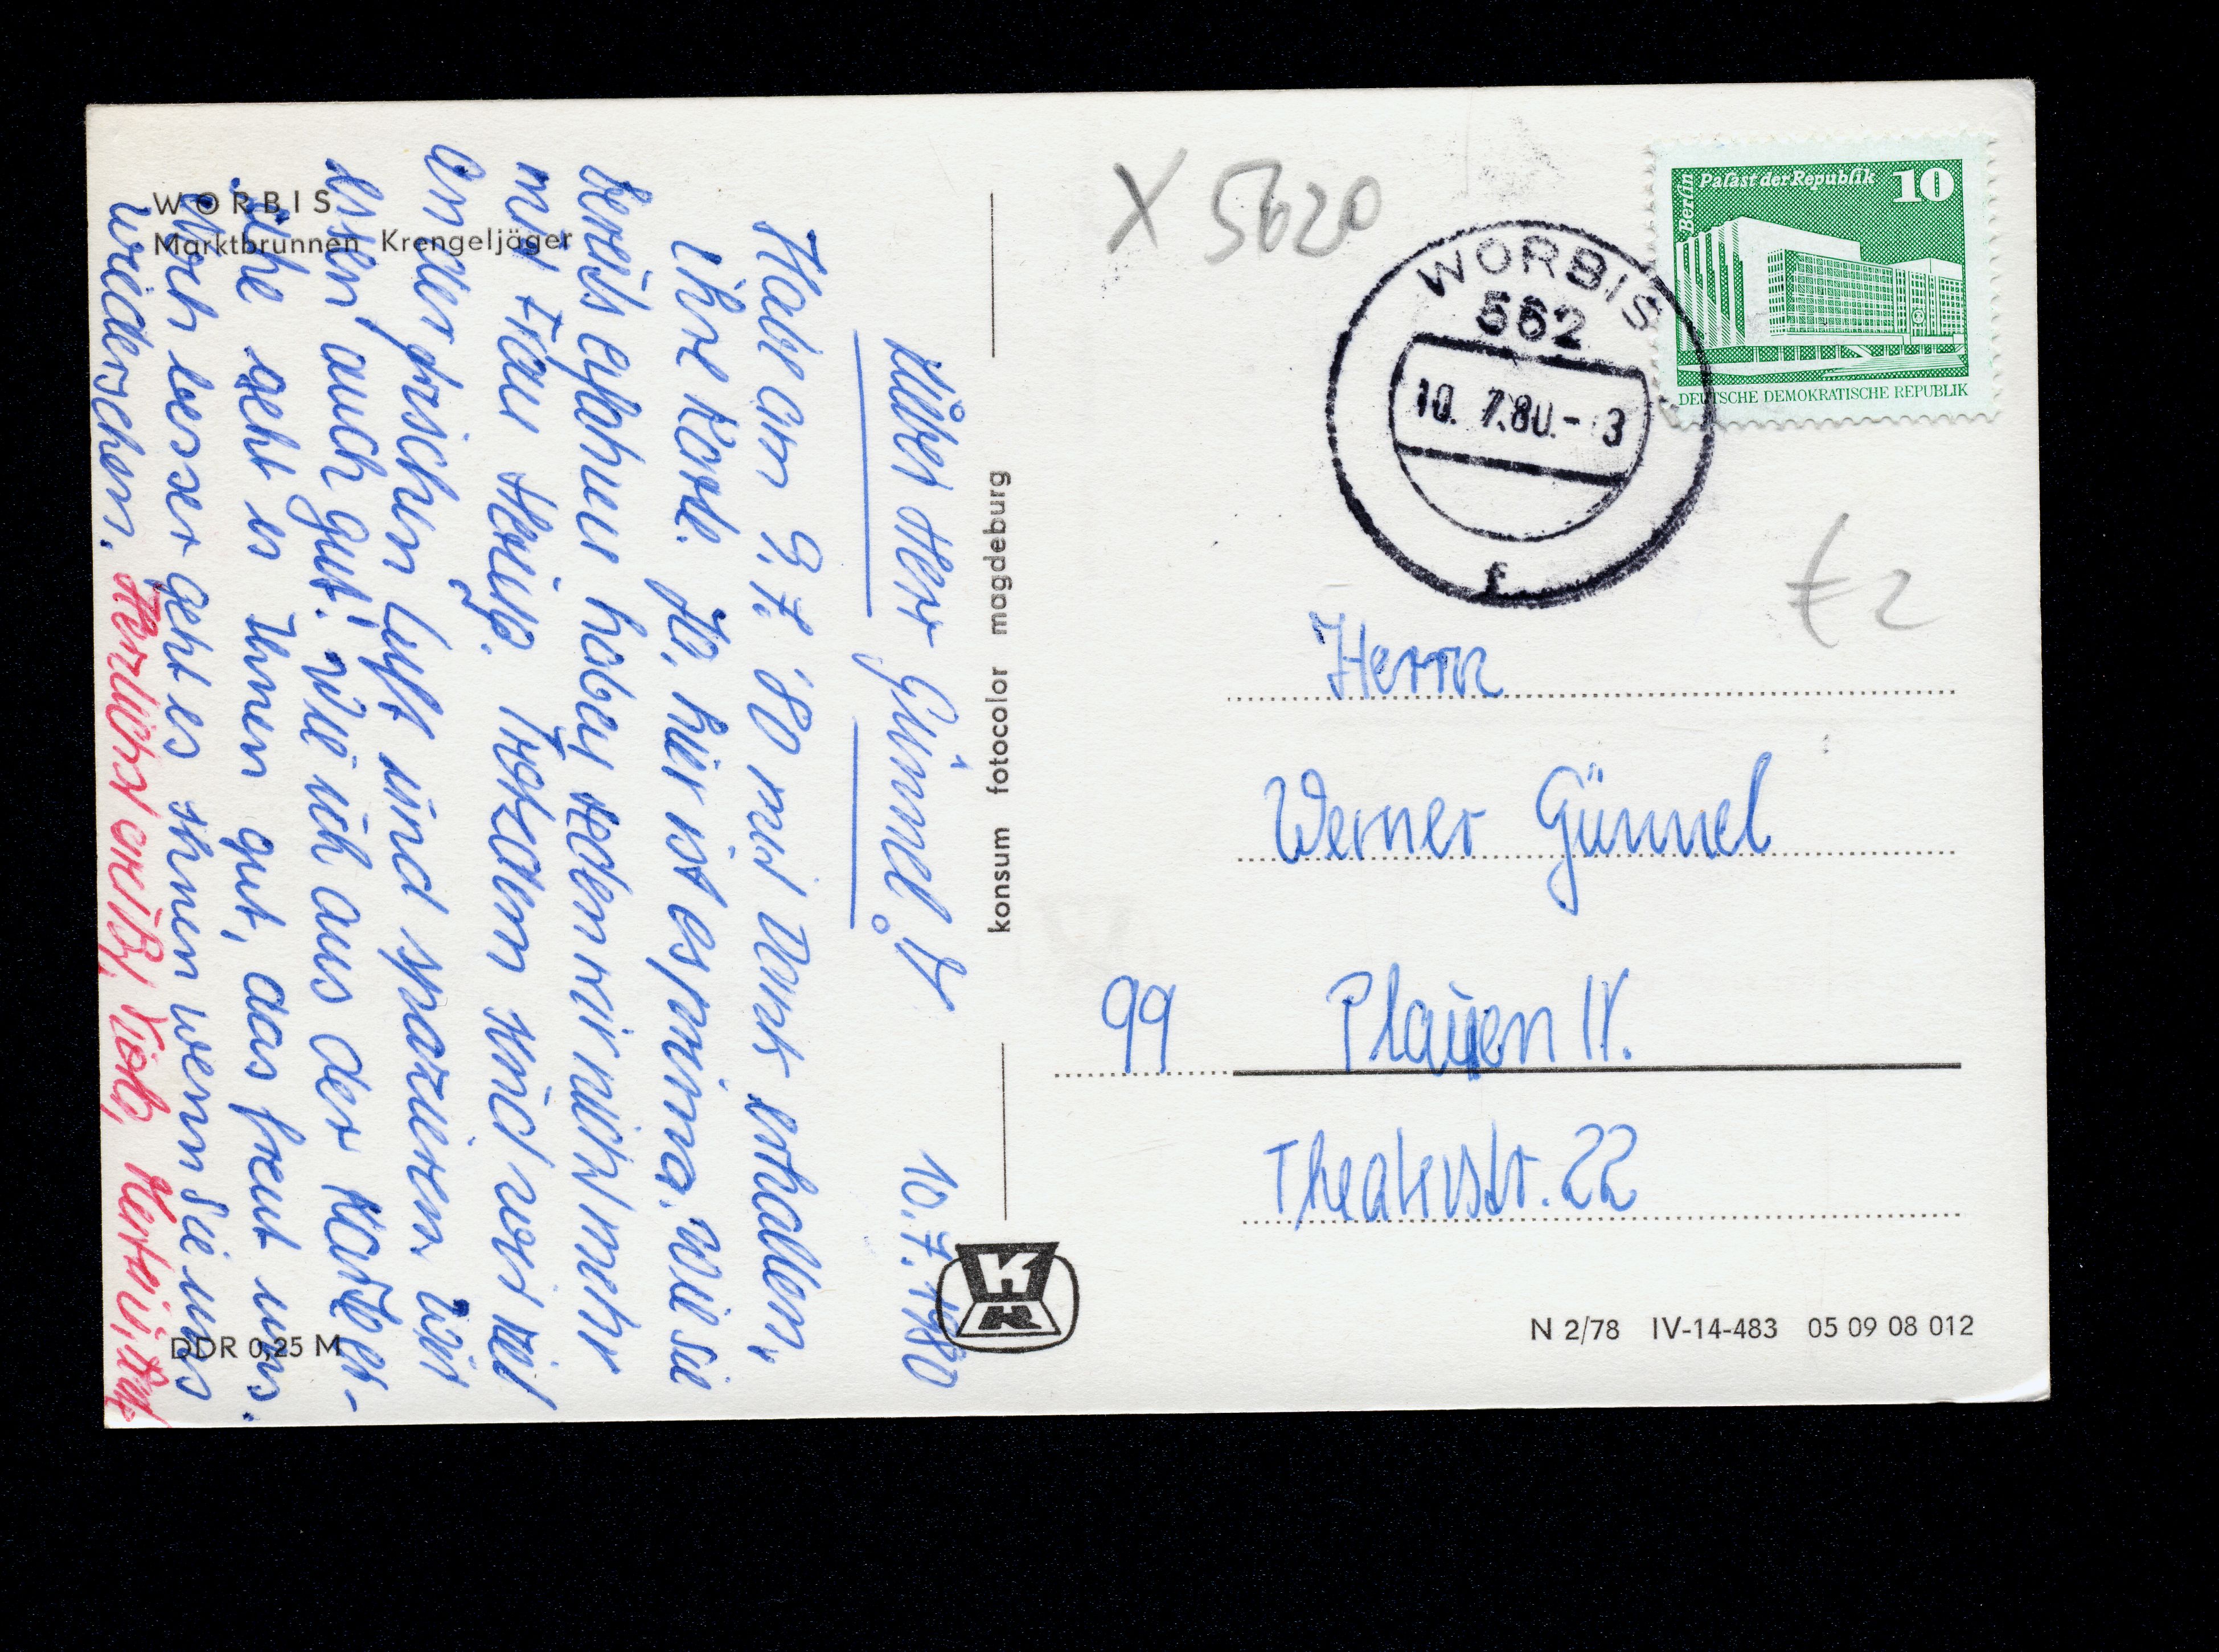 WORBIS
Marktbrunnen Krengeljäger
10.7.1980
Lieber Herr Günnel!
Habe am 9.7.'80 mit Dank erhalten,
ihre Karte. Ja, hier ist es prima. Wie sie
bereits erfahren haben reden wir nicht mehr
mit Frau Heruß. Trotzdem sind wir viel
an der frischen Luft und spazieren. Wir
essen auch gut! Wie ich aus der Karte
sehe geht es Ihnen gut, das freut uns.
Noch besser geht es Ihnen wenn Sie uns
wiedersehen. Herzlichst grüßt, Viola, Kerstin,
DDR 0,25 M
konsum fotocolor magdeburg
X 5620
Berlin
Palast der Republik 10
DEUTSCHE DEMOKRATISCHE REPUBLIK
WORBIS
562
10.7.80.-3
f
€2
Herrn
Werner Günnel
99 Plauen IV.
Theaterstr. 22
N 2/78 IV-14-483 05 09 08 012